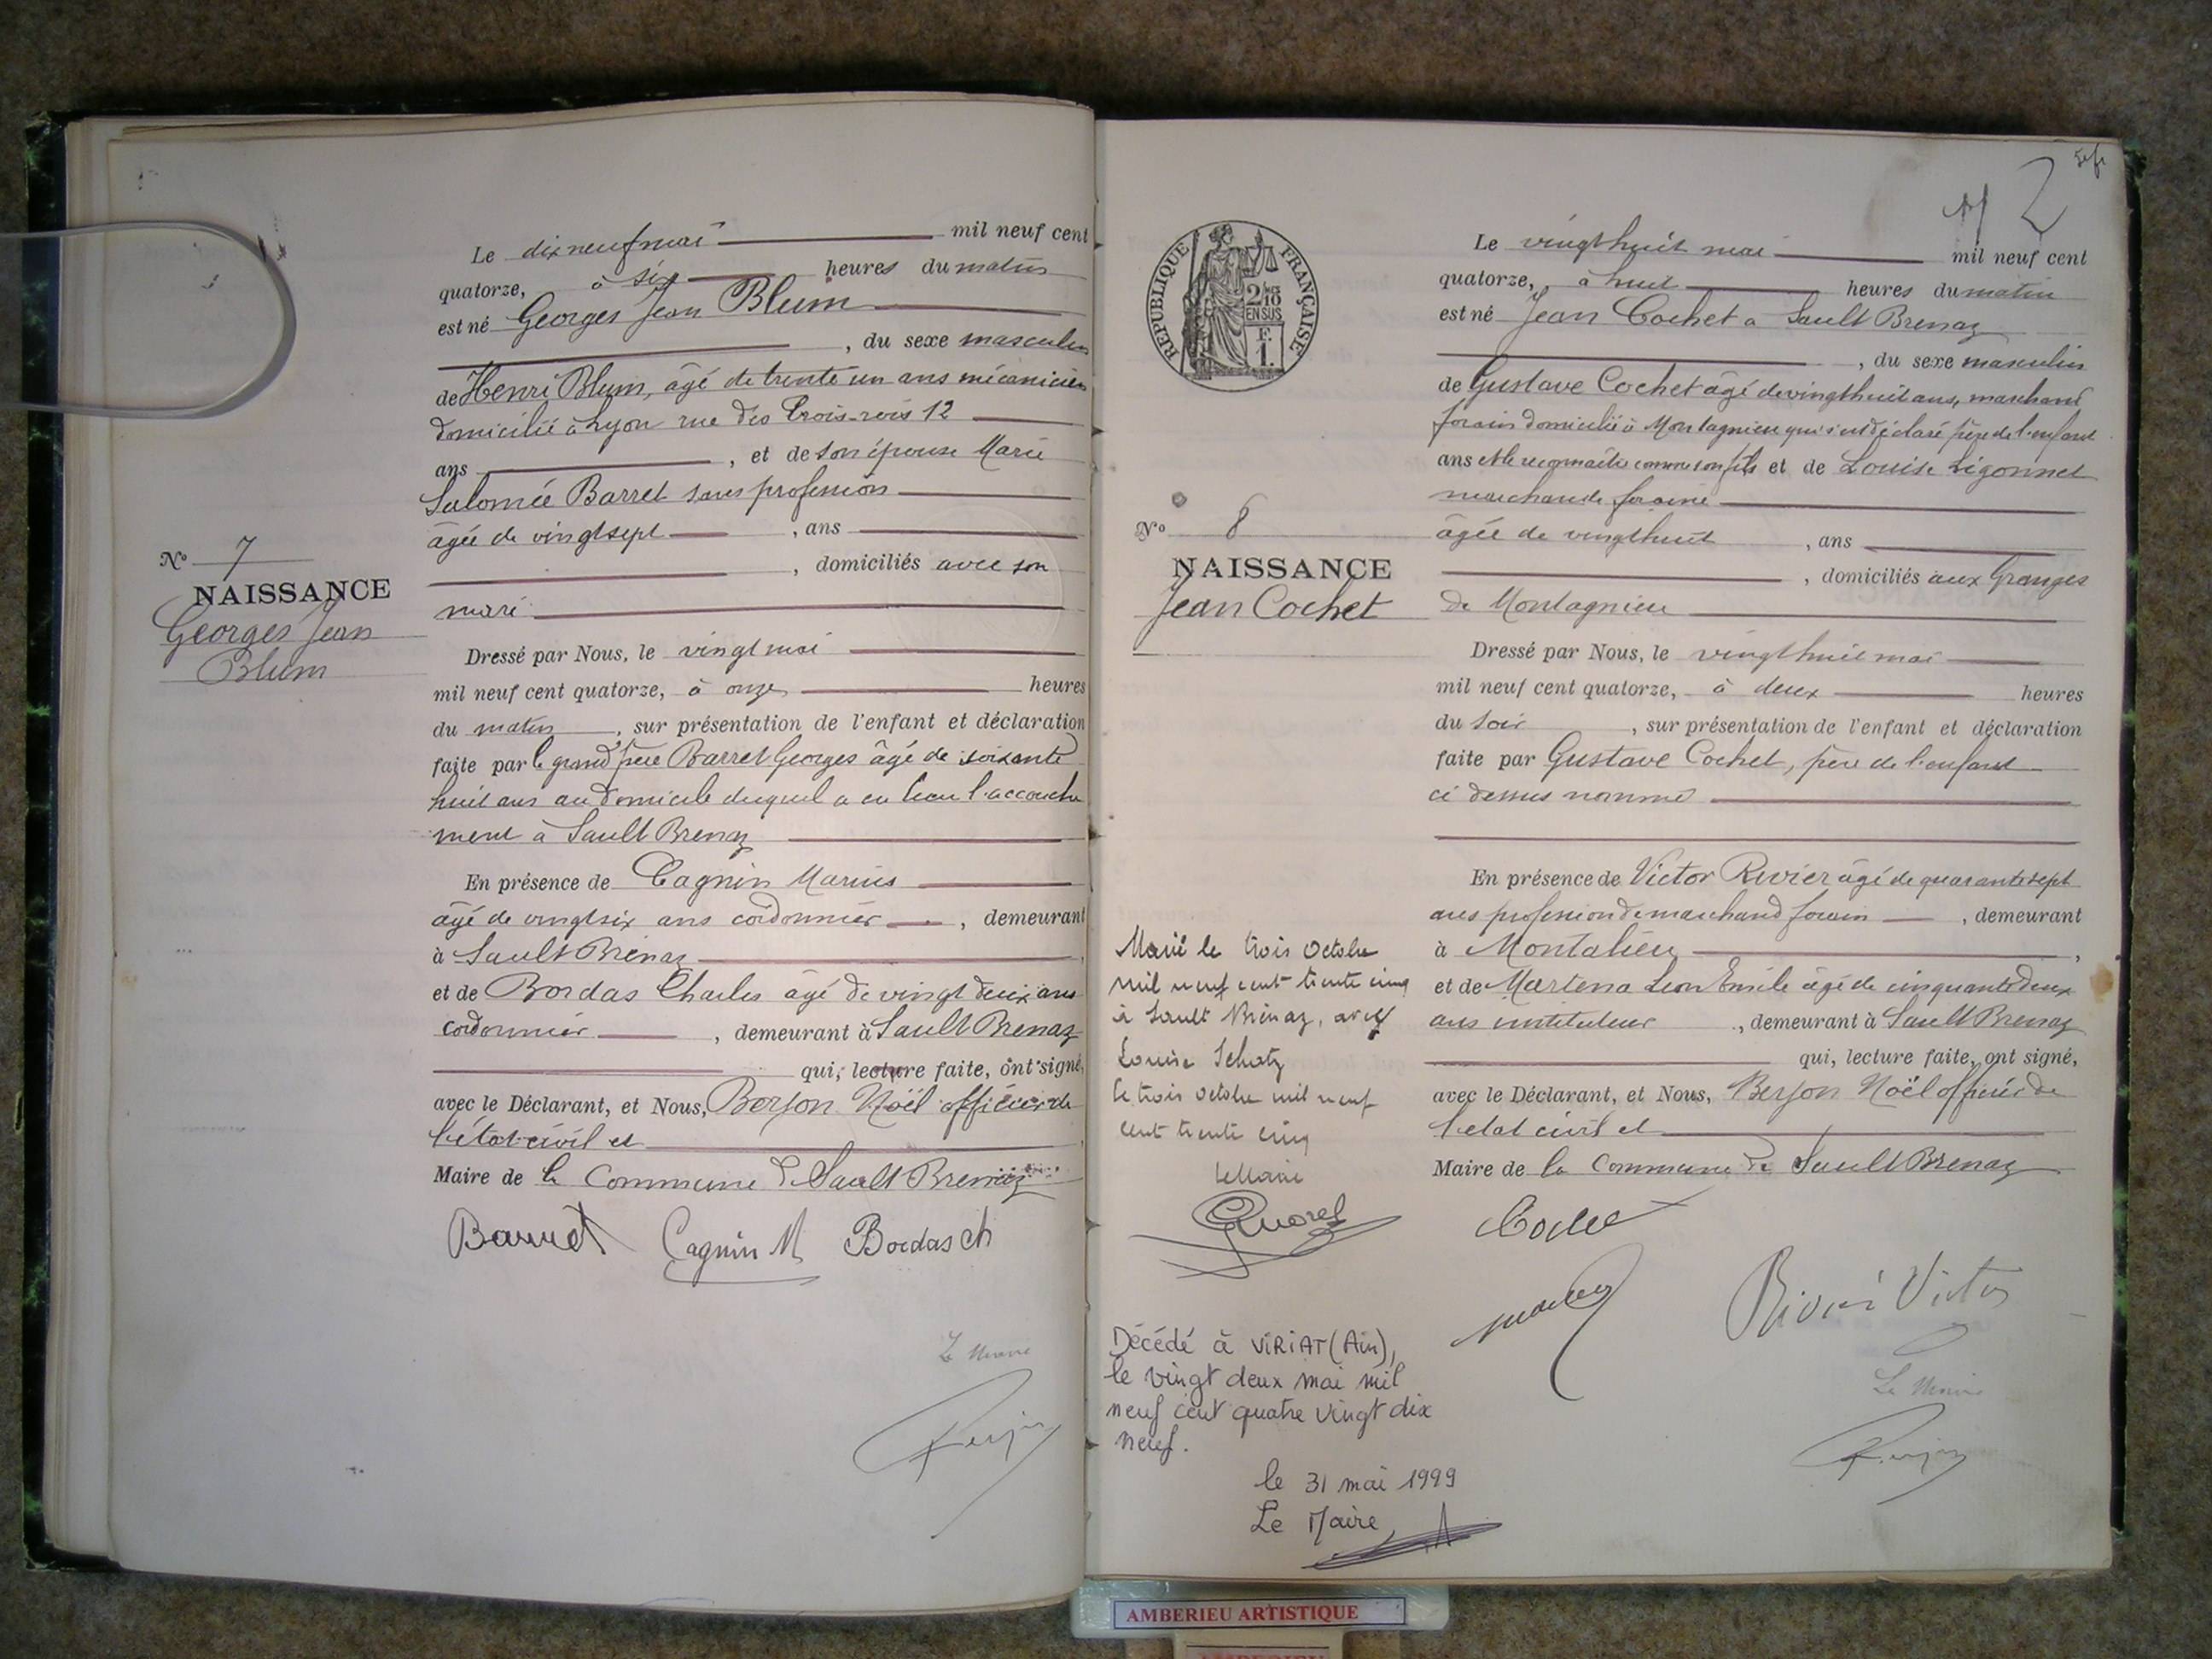 Le dix neuf mai mil neuf cent
quatorze, à six heures du matin
est né Georges Jean Blum
, du sexe masculin
de Henri Blum, âgé de trente un ans mécanicien
domicilié à Lyon rue des Trois-rois 12
ans , et de son épouse Marie
Salomée Barret sans profession
âgée de vingt sept , ans
, domiciliés avec son
mari
Nº 7
NAISSANCE
Georges Jean
Blum
Dressé par Nous, le vingt mai
mil neuf cent quatorze, à onze heures
du matin , sur présentation de l'enfant et déclaration
faite par le grand père Barret Georges âgé de soixante
huit ans au domicile duquel a eu lieu l'accouche
ment à Sault Brenaz
En présence de Cagnin Marius
âgé de vingt six ans cordonnier , demeurant
à Sault Brenaz
et de Bordas Charles âgé de vingt deux ans
cordonnier , demeurant à Sault Brenaz
qui, lecture faite, ont signé,
avec le Déclarant, et Nous, Berjon Noël officier de
l'état civil et
Maire de la Commune de Sault Brenaz
Barret Cagnin M Bordas ch
Le Maire
Berjon
2
REPUBLIQUE FRANÇAISE
2/10
EN SUS
F.
1.
Le vingt huit mai mil neuf cent
quatorze, à huit heures du matin
est né Jean Cochet a Sault Brenaz
, du sexe masculin
de Gustave Cochet âgé de vingt huit ans, marchand
forain domicilié à Montagnieu qui s'est déclaré père de l'enfant
ans et le reconnaître comme son fils et de Louise Ligonnet
marchande foraine
âgée de vingt huit , ans
, domiciliés aux Granges
de Montagnieu
Nº 8
NAISSANCE
Jean Cochet
Dressé par Nous, le vingt huit mai
mil neuf cent quatorze, à deux heures
du soir , sur présentation de l'enfant et déclaration
faite par Gustave Cochet, père de l'enfant
ci dessus nommé
En présence de Victor Rivier âgé de quarante sept
ans profession de marchand forain , demeurant
à Montalieu ,
et de Martena Leon Emile âgé de cinquante deux
ans instituteur , demeurant à Sault Brenaz
qui, lecture faite, ont signé,
avec le Déclarant, et Nous, Berjon Noël officier de
l'etat civil et
Maire de la Commune de Sault Brenaz
Marié le trois Octobre
mil neuf cent trente cinq
à Sault Brénaz, avec
Louise Schatz
le trois octobre mil neuf
cent trente cinq
Le Maire
Cochet
Rivier Victor
Le Maire
Berjon
Décédé à VIRIAT (Ain),
le vingt deux mai mil
neuf cent quatre vingt dix
neuf.
le 31 mai 1999
Le Maire,
AMBERIEU ARTISTIQUE
AMBERIEU